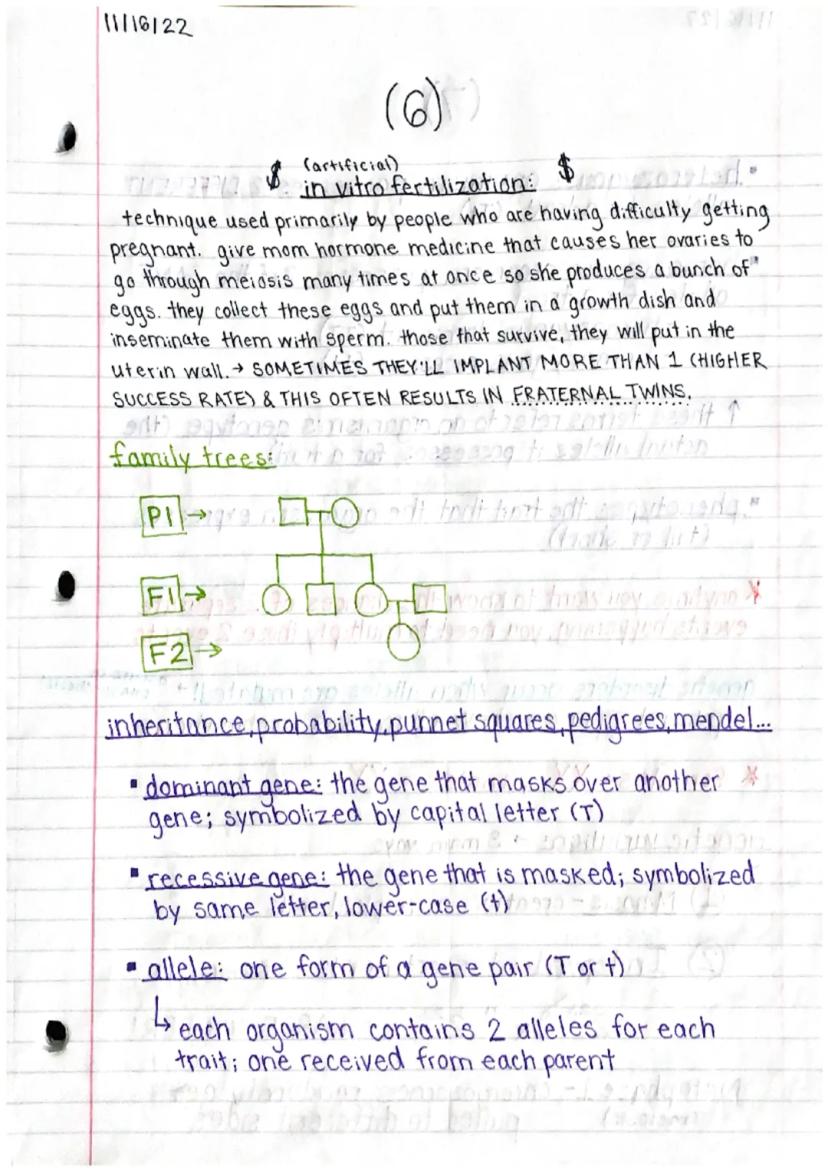 11/16/22
(6)
(artificial)
$ in vitro fertilization: $
technique used primarily by people who are having difficulty getting
pregnant. give mom hormone medicine that causes her ovaries to
go through meiosis many times at once so she produces a bunch of
eggs. they collect these eggs and put them in a growth dish and
inseminate them with sperm. those that survive, they will put in the
uterin wall. → SOMETIMES THEY'LL IMPLANT MORE THAN 1 (HIGHER
SUCCESS RATE) & THIS OFTEN RESULTS IN FRATERNAL TWINS.
family trees:
P1 →
F1 →
F2 →
inheritance, probability, punnet squares, pedigrees, mendel...
▪ dominant gene: the gene that masks over another
gene; symbolized by capital letter (T)
▪ recessive gene: the gene that is masked; symbolized
by same letter, lower-case (t)
▪ allele: one form of a gene pair (T or t)
↳ each organism contains 2 alleles for each
trait; one received from each parent